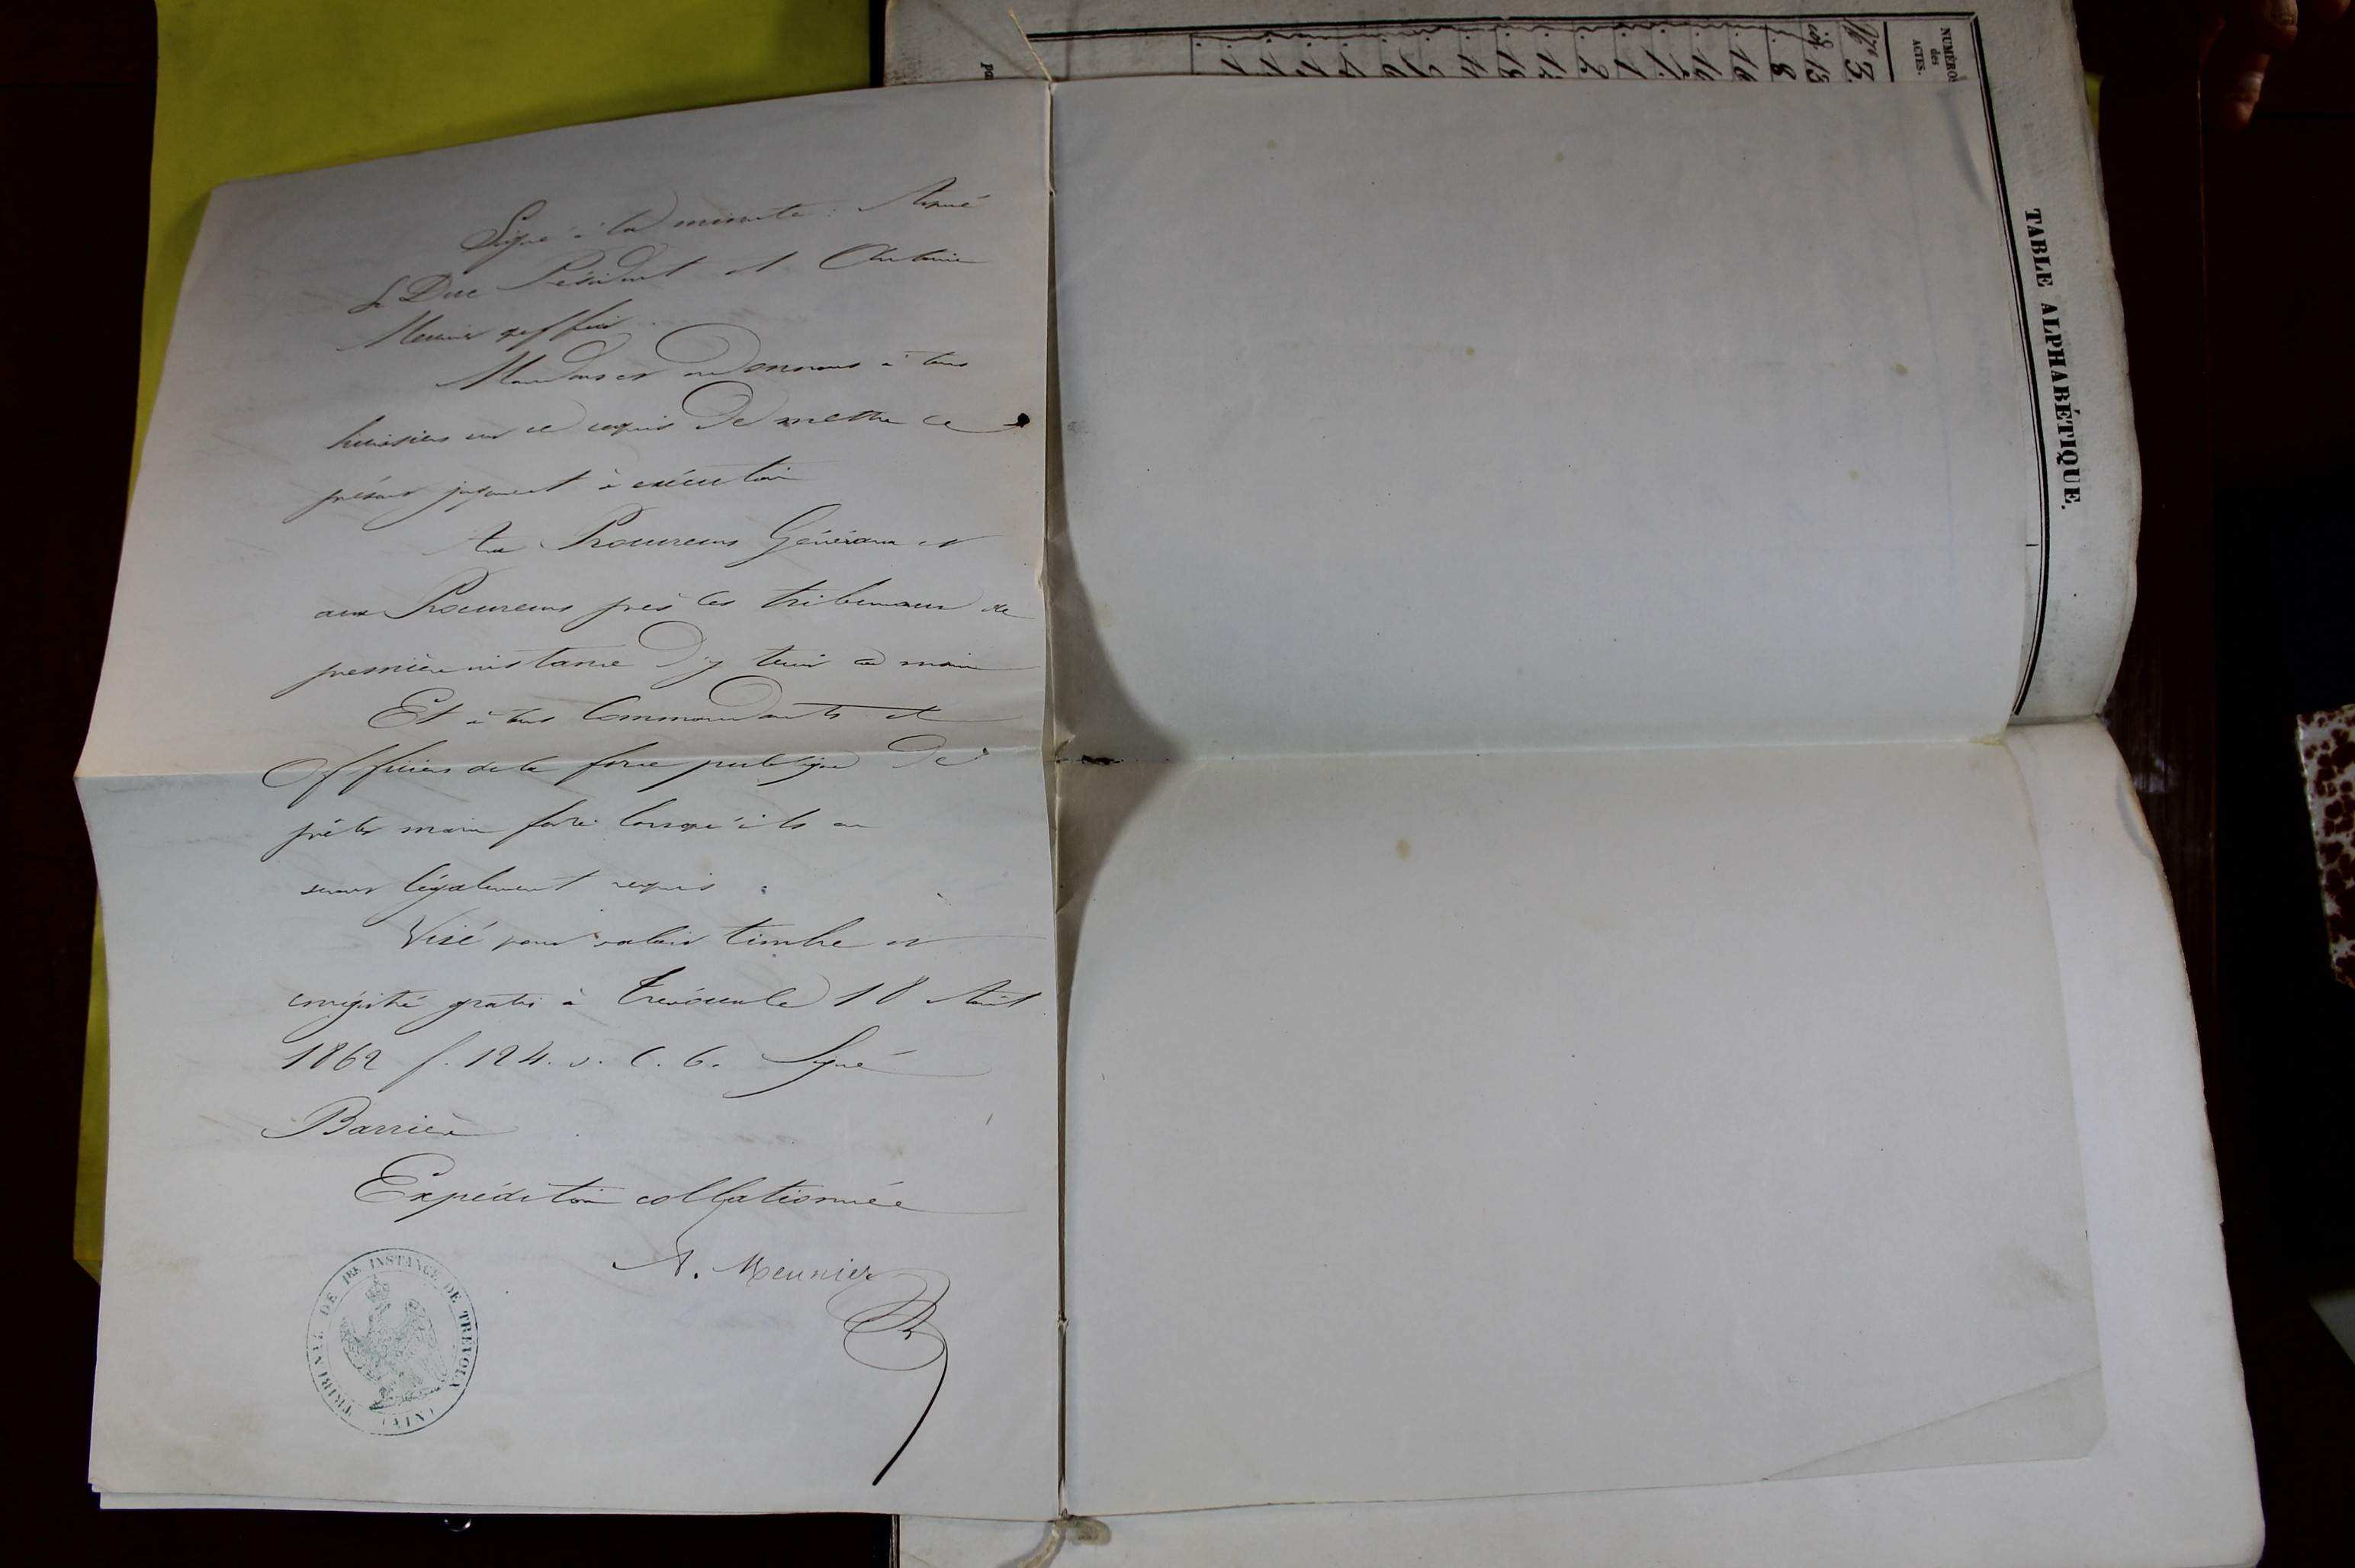 Signé à la minute : Aimé
Le Duc Président et Antoine
Meunier greffier
Mandons et ordonnons à tous
huissiers sur ce requis de mettre ce
présent jugement à exécution
Aux Procureurs Généraux et
aux Procureurs près les tribunaux de
première instance d'y tenir la main
Et à tous Commandants et
Officiers de la force publique de
prêter main forte lorsqu'ils en
seront légalement requis.
Visé pour valoir timbre et
enrégistré gratis à Trévoux le 18 Août
1862 f. 124. v. C. 6. Signé
Barrière
Expédition collationnée
A. Meunier
TRIBUNAL DE 1RE INSTANCE DE TREVOUX
(AIN)
TABLE ALPHABÉTIQUE.
NUMÉROS
des
ACTES.